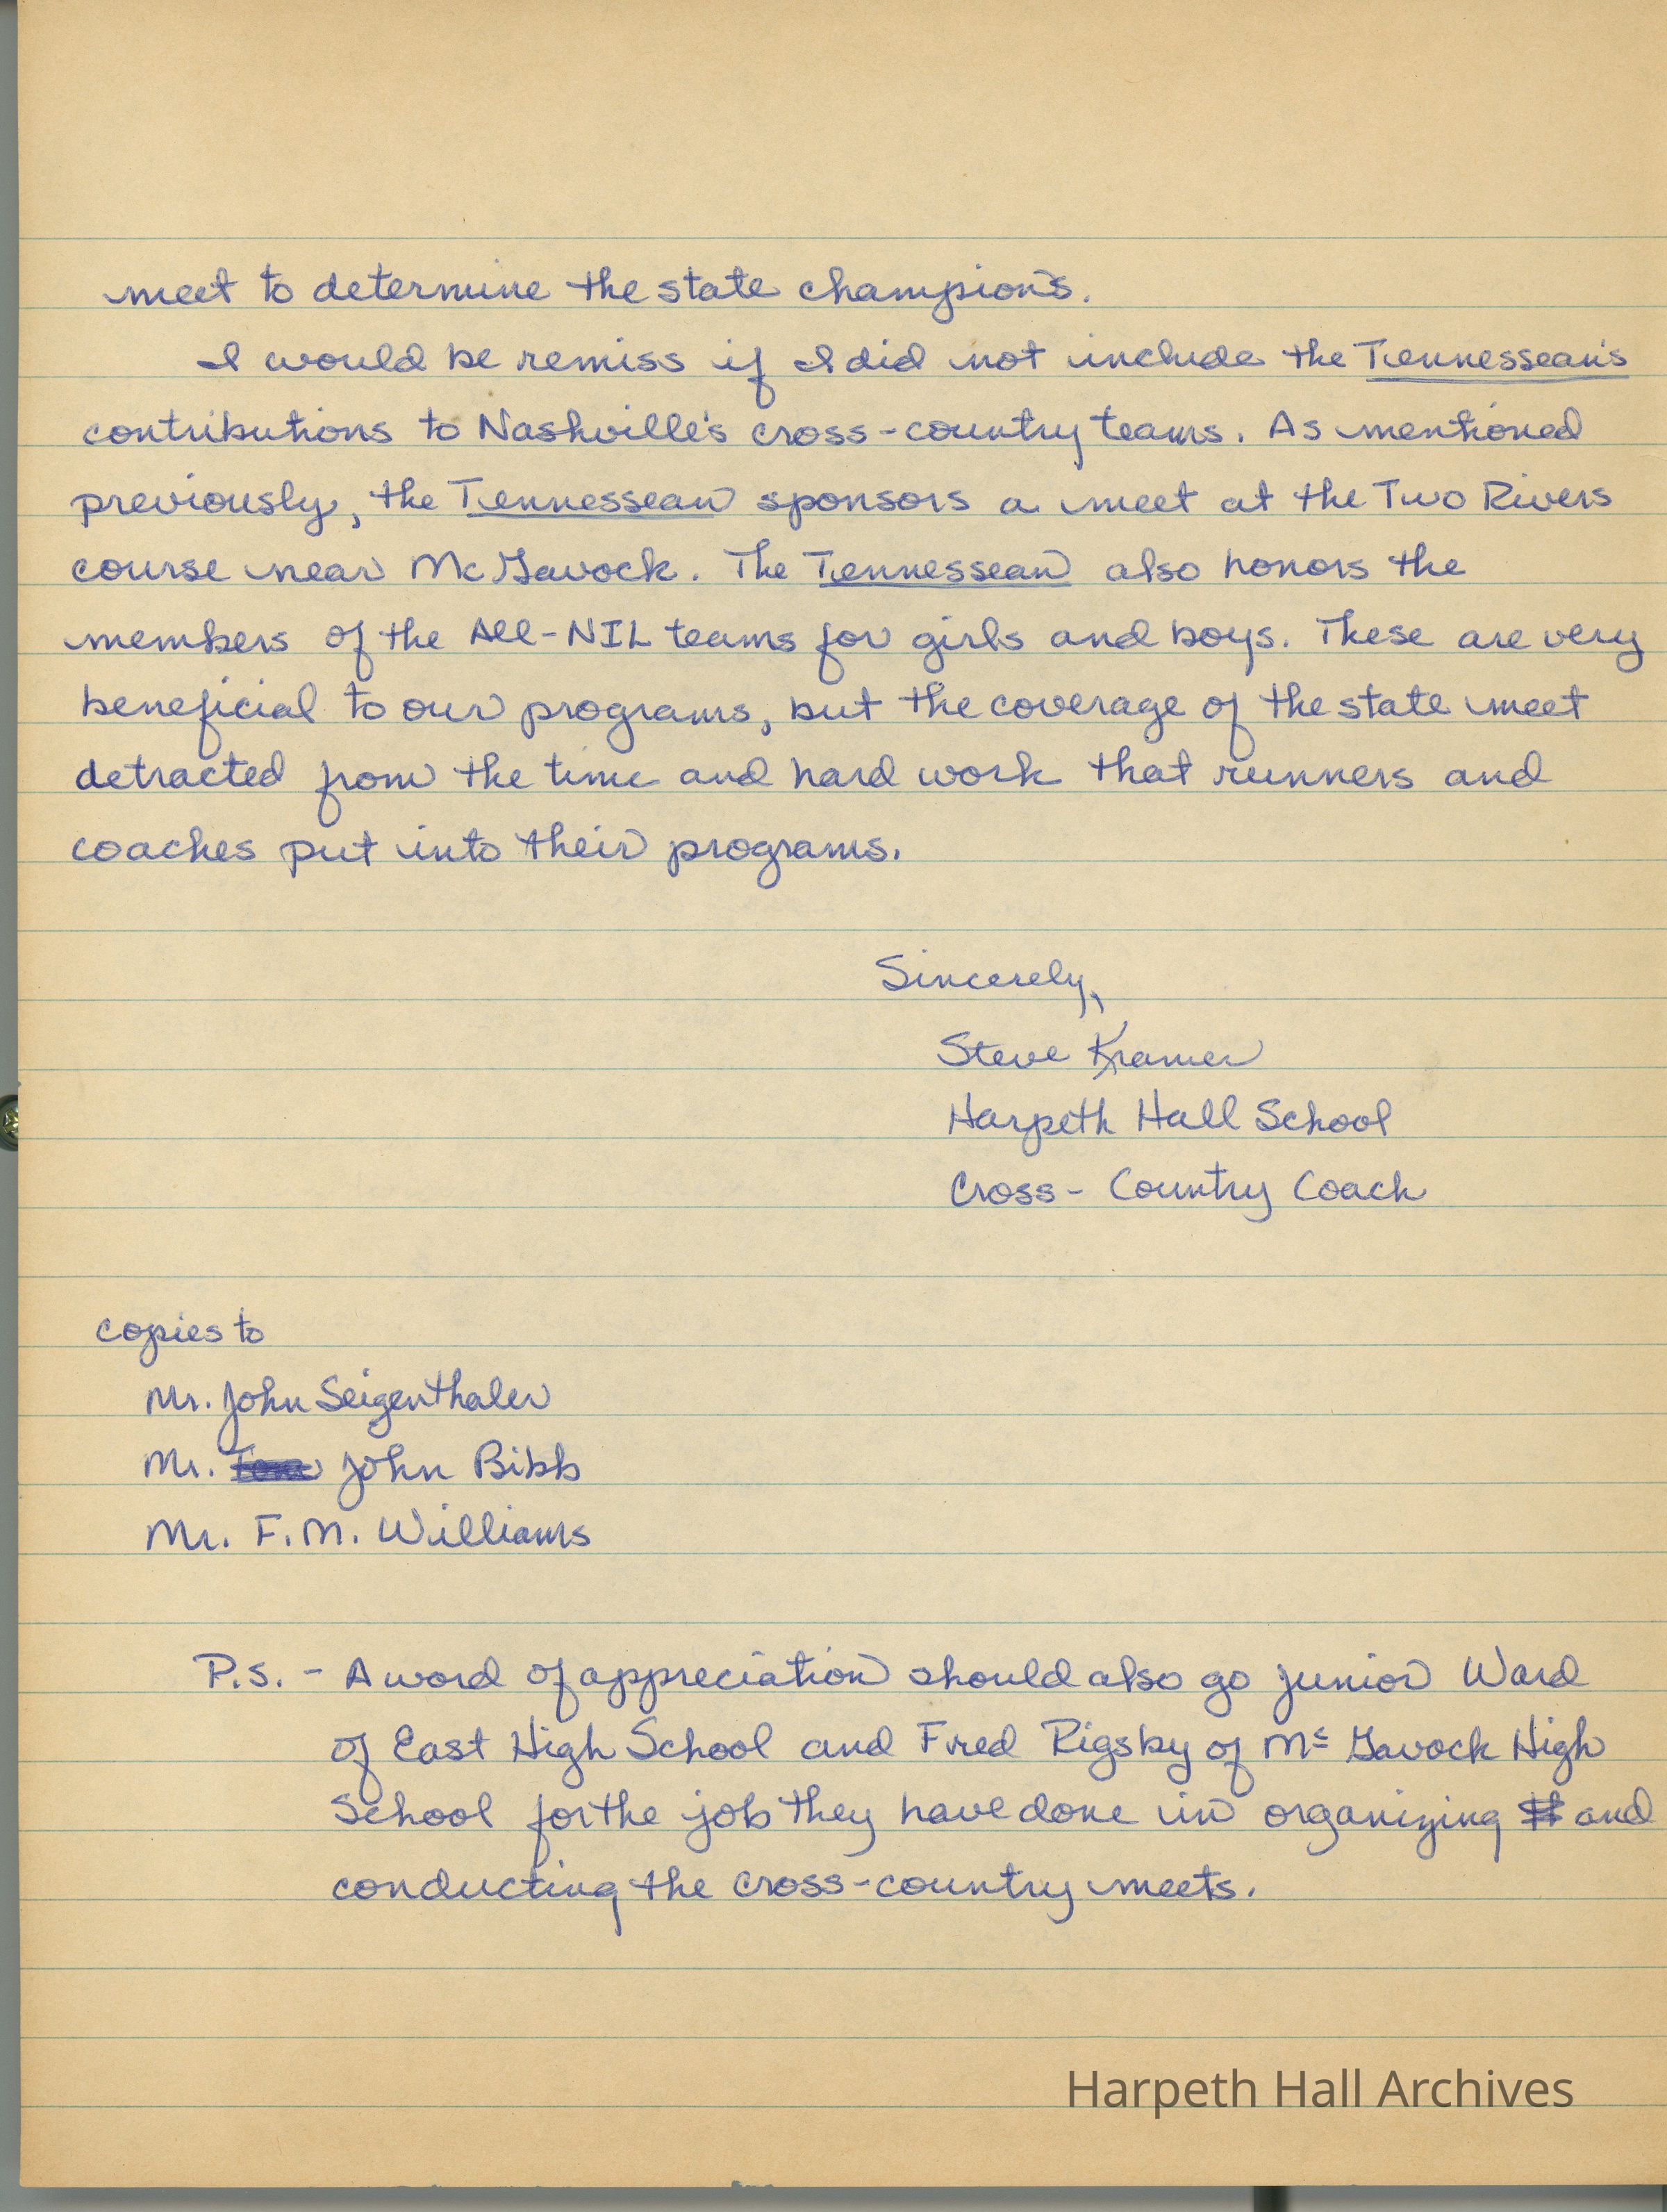 meet to determine the state champions.
I would be remiss if I did not include the Tennessean's
contributions to Nashville's cross-country teams. As mentioned
previously, the Tennessean sponsors a meet at the Two Rivers
course near McGavock. The Tennessean also honors the
members of the All-NIL teams for girls and boys. These are very
beneficial to our programs, but the coverage of the state meet
detracted from the time and hard work that runners and
coaches put into their programs.
Sincerely,
Steve Kramer
Harpeth Hall School
Cross-Country Coach
copies to
Mr. John Seigenthaler
Mr. John Bibb
Mr. F.M. Williams
P.S. - A word of appreciation should also go Junior Ward
of East High School and Fred Rigsby of McGavock High
School for the job they have done in organizing and
conducting the cross-country meets.
Harpeth Hall Archives